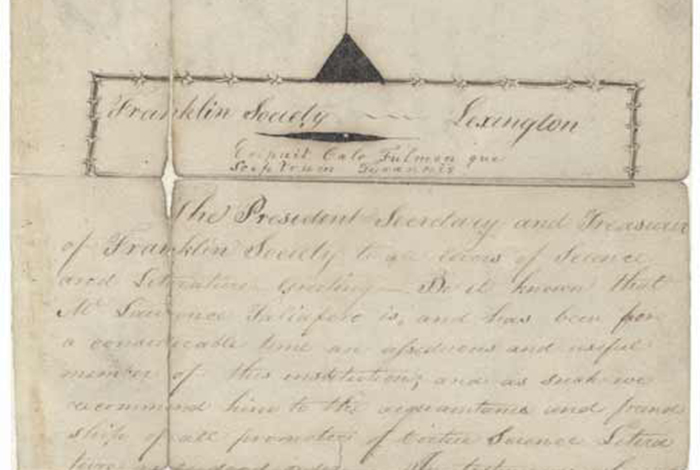 Franklin Society Lexington
Eripuit Calo Fulmen que
Sceptrum Tyrannis
The President Secretary and Treasurer
of Franklin Society to all lovers of Science
and Literature Greeting — Be it known that
Mr Lawrence Taliafero is, and has been for
a considerable time an assiduous and useful
member of this institution; and as such we
recommend him to the acquaintance and friend
ship of all promoters of virtue Science Litera
ture and good order